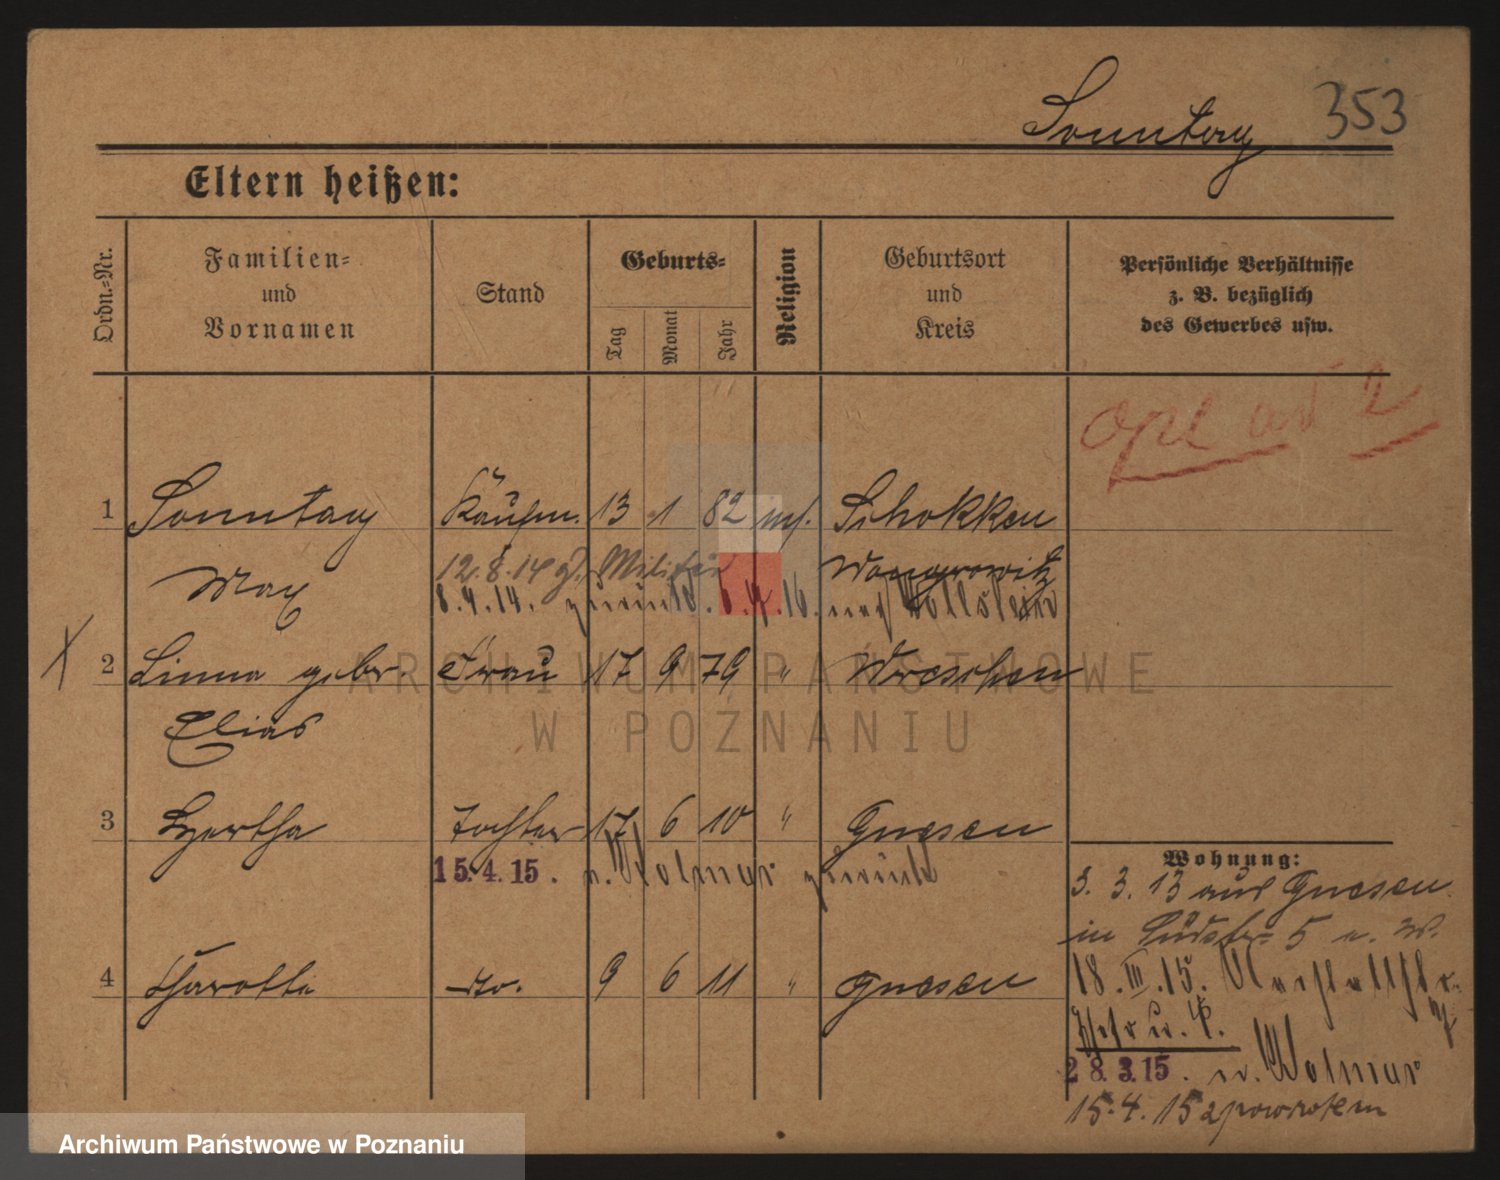 353
Sonntag
Eltern heißen:
Ordn.-Nr.
Familien-
und
Vornamen
Stand
Geburts-
Tag
Monat
Jahr
Religion
Geburtsort
und
Kreis
Persönliche Verhältnisse
z. B. bezüglich
des Gewerbes usw.
1 Sonntag Kaufm. 13 1 82 mos. Schokken
12.8.14 Militär
Max Wongrowitz
8.4.14. zurück. 6.4.16. nach Wollstein
X
2 Linna gebr. Frau 17 9 79 " Wreschen
Elias
3 Hertha Tochter 17 6 10 " Gnesen
15.4.15. v. Wolmar zurück
4 Charotte do. 9 6 11 " Gnesen
Wohnung:
3. 3. 13 aus Gnesen
in Südstr 5 u. W.
18. III. 15.
28.3.15. n. Wolmar
15.4.15 zpowrotem
ARCHIWUM PAŃSTWOWE
W POZNANIU
Archiwum Państwowe w Poznaniu